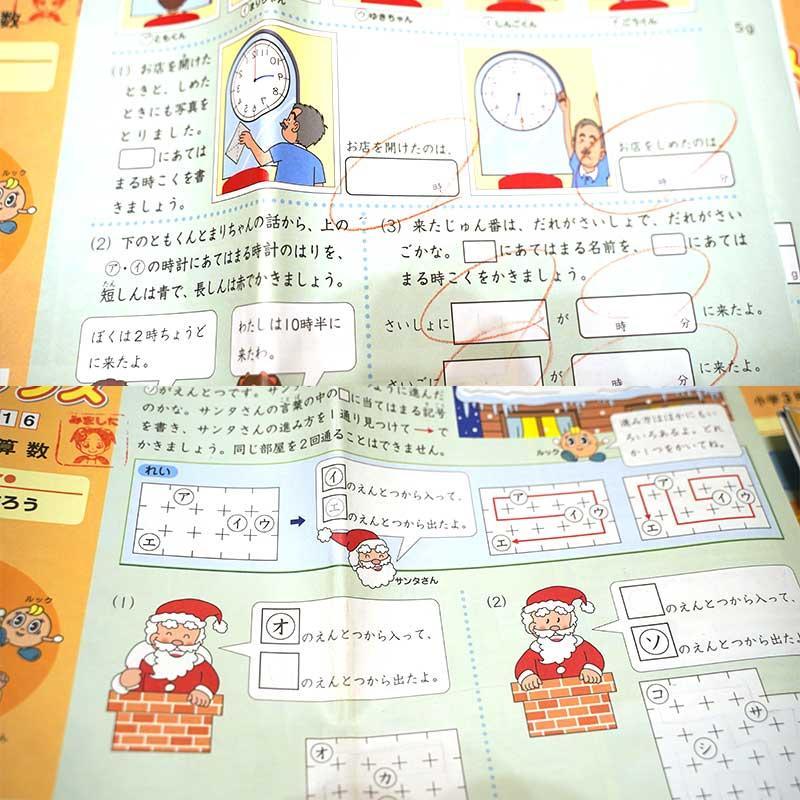 算数
㋒ゆきちゃん
しんごくん
5g
(1) お店を開けた
ときと、しめた
ときにも写真を
とりました。
□にあては
まる時こくを書
きましょう。
お店を開けたのは、
時
お店をしめたのは、
時 分
(2) 下のともくんとまりちゃんの話から、上の
㋐・㋑の時計にあてはまる時計のはりを、
短しんは青で、長しんは赤でかきましょう。
たん
ぼくは2時ちょうど
に来たよ。
わたしは10時半に
来たわ。
(3) 来たじゅん番は、だれがさいしょで、だれがさい
ごかな。□にあてはまる名前を、□にあては
まる時こくをかきましょう。
さいしょに
が
時 分
に来たよ。
さいごに
が
時 分
に来たよ。
ルック
16
算数
みました
がえんとつです。サンタ
に進んだ
のかな。サンタさんの言葉の中の□に当てはまる記号
を書き、サンタさんの進み方を1通り見つけて→で
かきましょう。同じ部屋を2回通ることはできません。
ルック
進み方はほかにもい
ろいろあるよ。どれ
か1つをかいてね。
れい
㋐
㋑ ㋒
㋓
㋑のえんとつから入って、
㋓のえんとつから出たよ。
サンタさん
㋐
㋑ ㋒
㋓
㋐
㋑ ㋒
㋓
(1)
㋔のえんとつから入って、
□のえんとつから出たよ。
㋔
㋕
(2)
□のえんとつから入って、
㋞のえんとつから出たよ
㋙
㋚
㋛
ルック